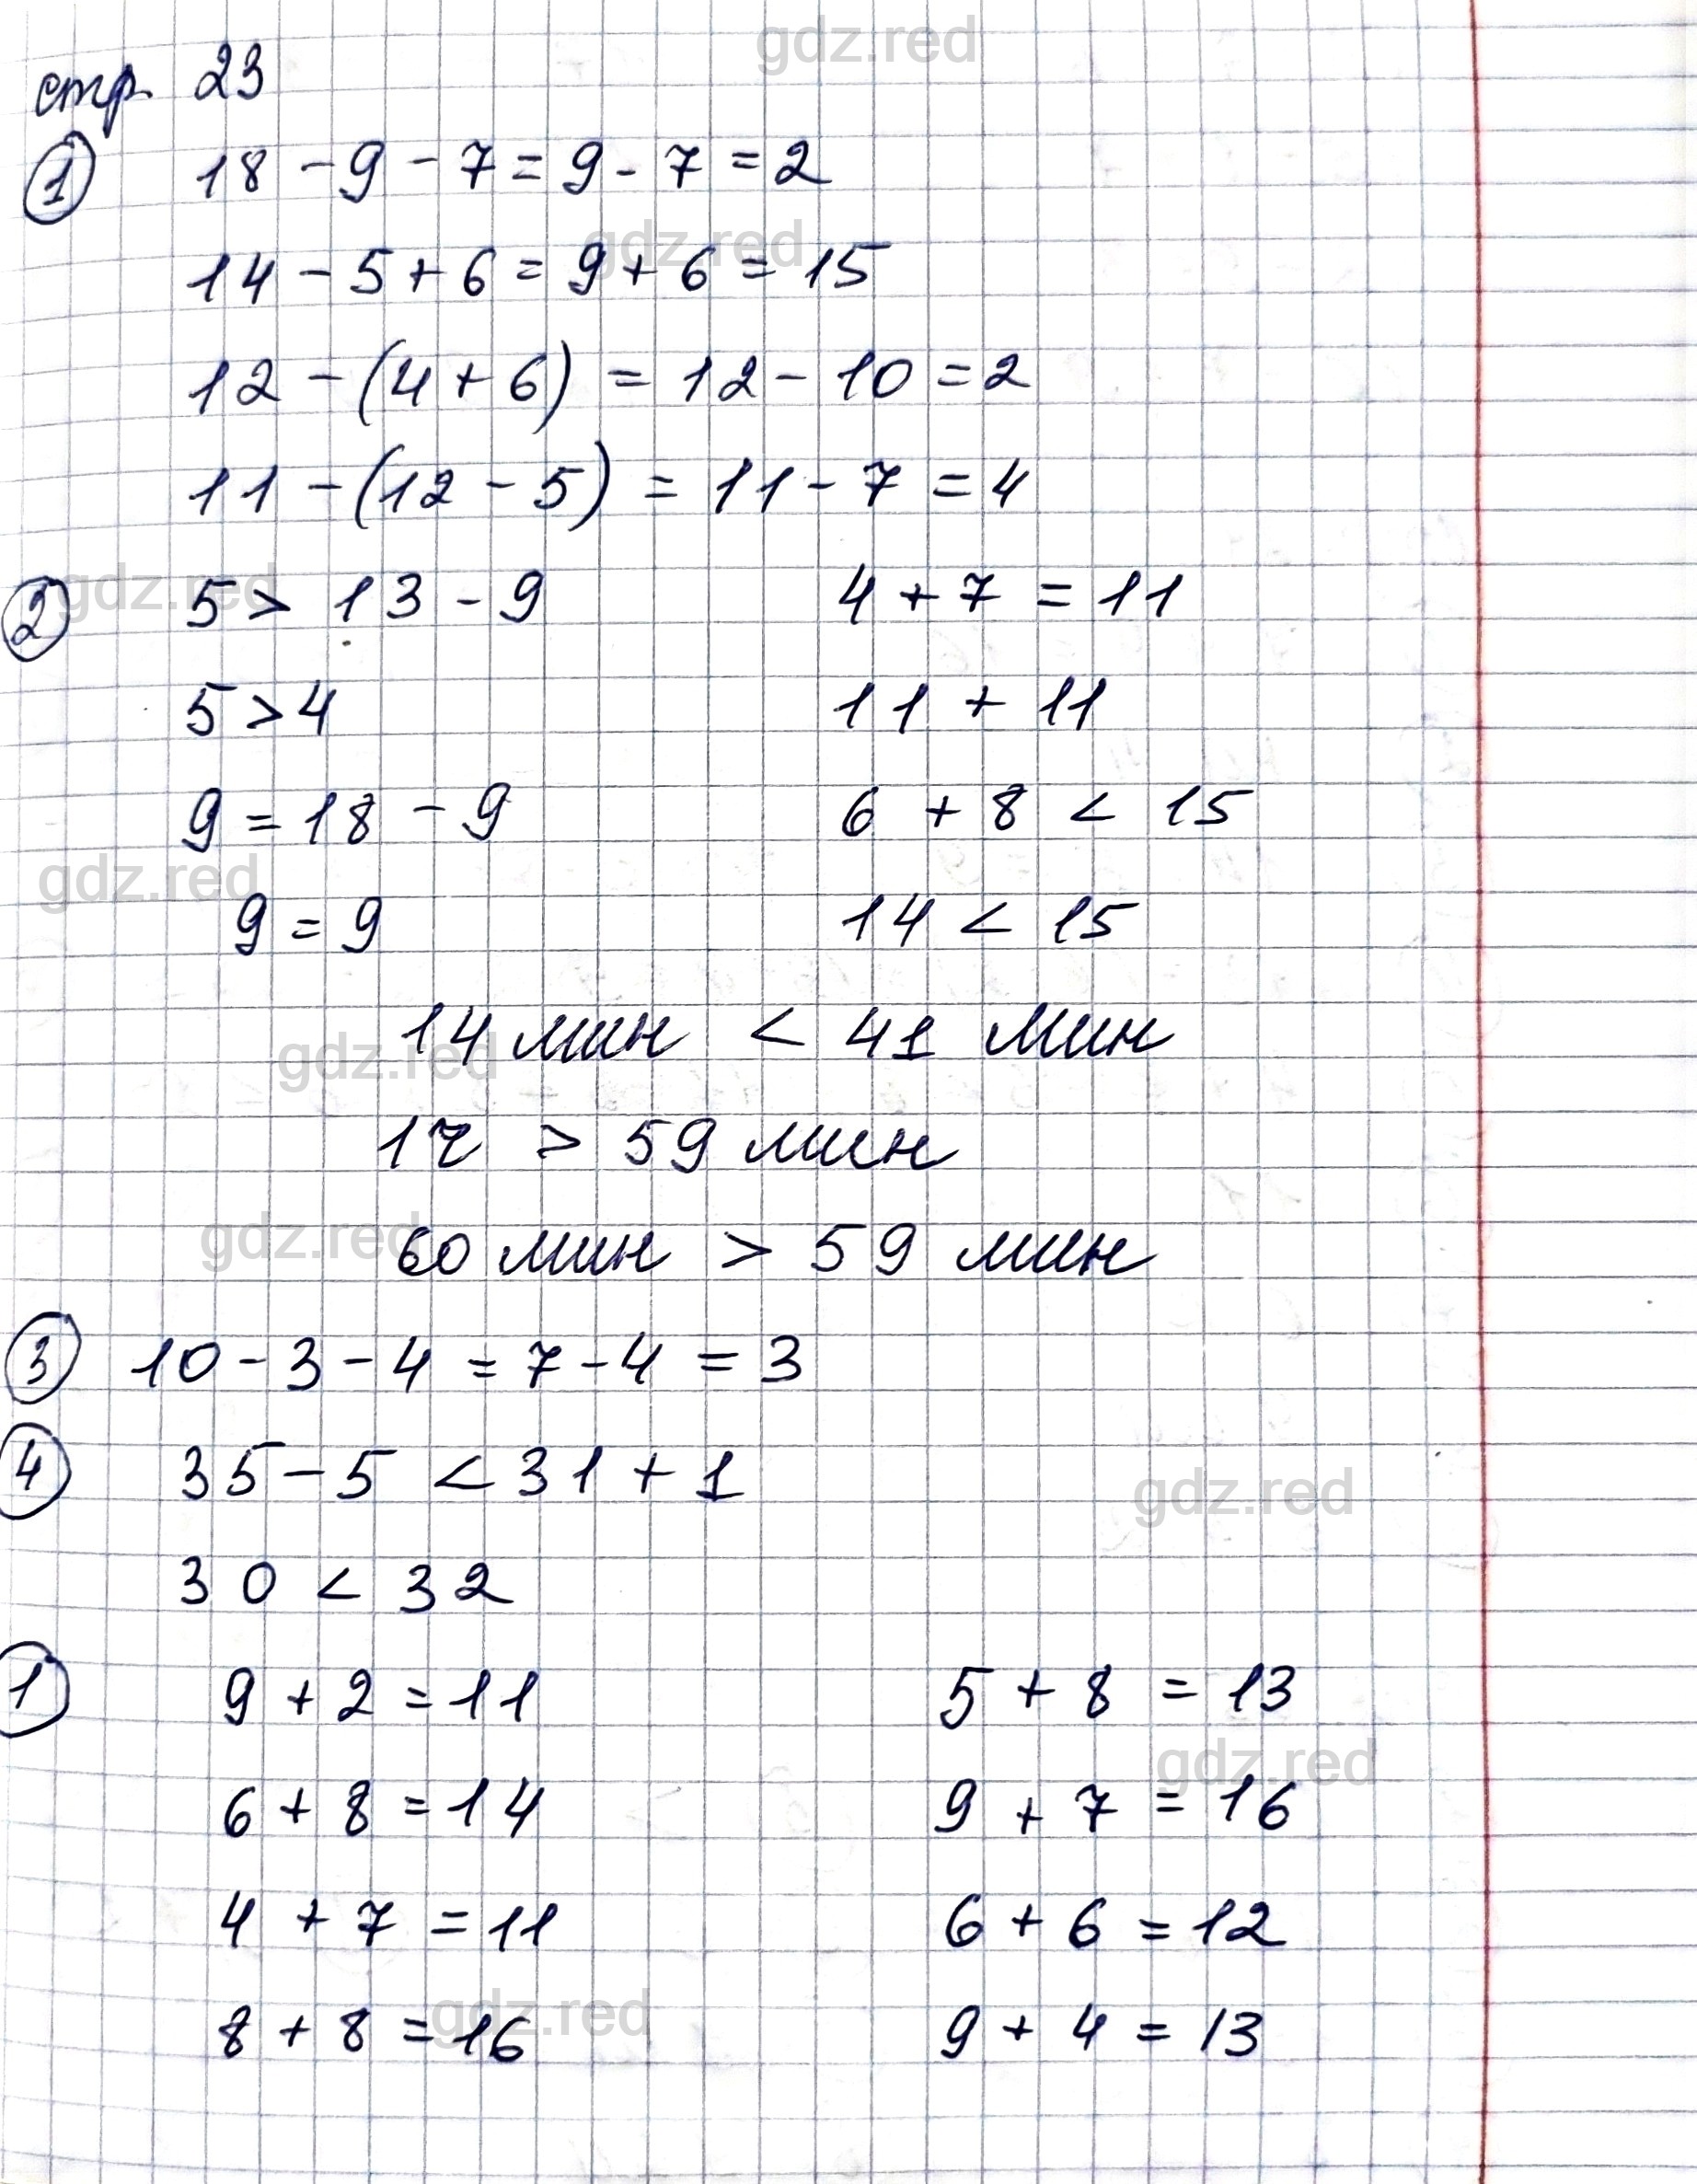 gdz.red
стр. 23
① 18 - 9 - 7 = 9 - 7 = 2
gdz.red
14 - 5 + 6 = 9 + 6 = 15
12 - (4 + 6) = 12 - 10 = 2
11 - (12 - 5) = 11 - 7 = 4
gdz.red
② 5 > 13 - 9 4 + 7 = 11
5 > 4 11 + 11
9 = 18 - 9 6 + 8 < 15
gdz.red
9 = 9 14 < 15
14 мин < 41 мин
gdz.red
1 ч > 59 мин
gdz.red
60 мин > 59 мин
③ 10 - 3 - 4 = 7 - 4 = 3
④ 35 - 5 < 31 + 1
gdz.red
30 < 32
① 9 + 2 = 11 5 + 8 = 13
gdz.red
6 + 8 = 14 9 + 7 = 16
4 + 7 = 11 6 + 6 = 12
gdz.red
8 + 8 = 16 9 + 4 = 13